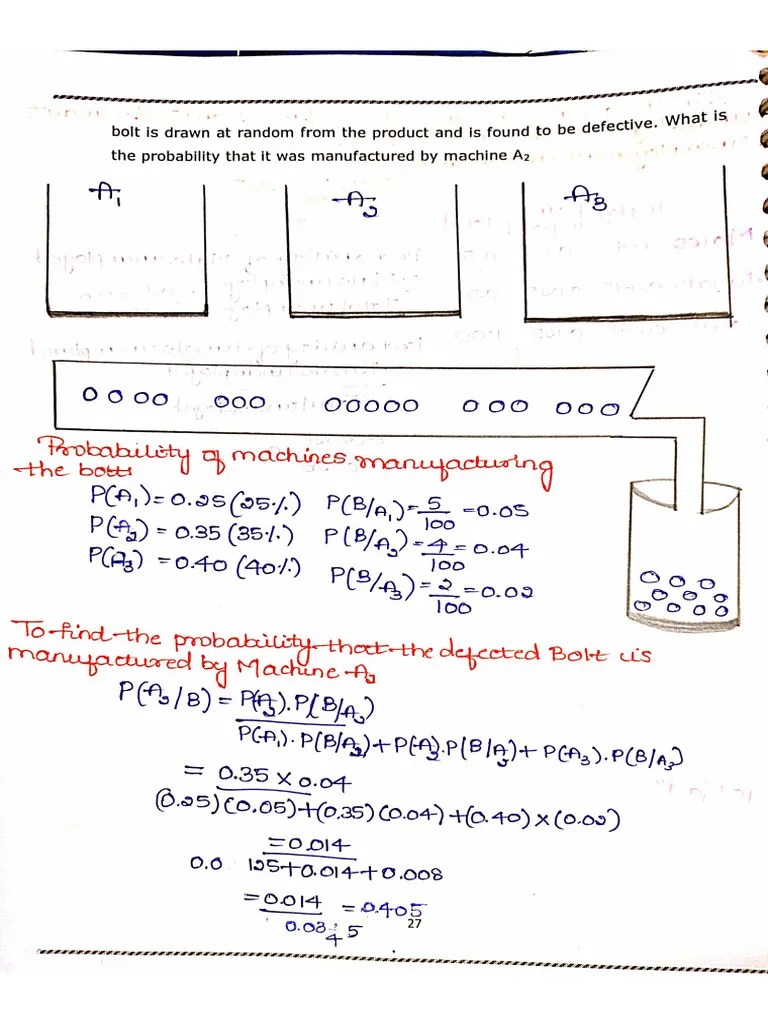 bolt is drawn at random from the product and is found to be defective. What is
the probability that it was manufactured by machine A2
A1 A2 A3
Probability of machines manufacturing
the bolts
P(A1)=0.25(25%) P(B/A1)=5/100=0.05
P(A2)=0.35(35%) P(B/A2)=4/100=0.04
P(A3)=0.40(40%) P(B/A3)=2/100=0.02
To find the probability that the defected Bolt is
manufactured by Machine A2
P(A2/B)=P(A2).P(B/A2)
P(A1).P(B/A2)+P(A2).P(B/A2)+P(A3).P(B/A3)
=0.35×0.04
(0.25)(0.05)+(0.35)(0.04)+(0.40)×(0.02)
=0.014
0.0 125+0.014+0.008
=0.014 =0.405
0.03 4 5
27